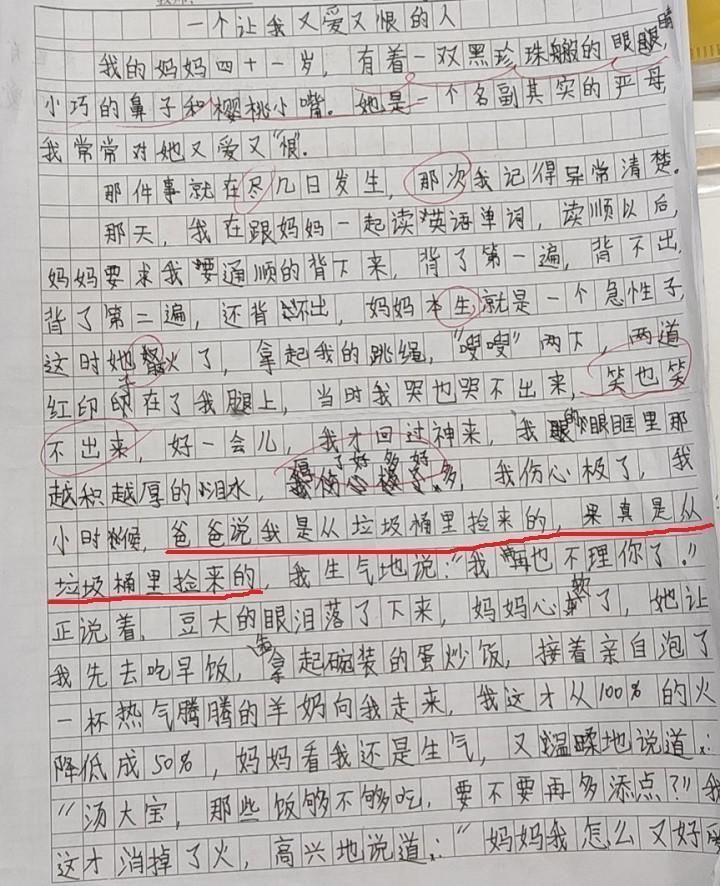 一个让我又爱又恨的人
我的妈妈四十一岁，有着一双黑珍珠般的眼睛，
小巧的鼻子和樱桃小嘴。她是一个名副其实的严母，
我常常对她又爱又"恨".
那件事就在尽几日发生，那次我记得异常清楚。
那天，我在跟妈妈一起读英语单词，读顺以后，
妈妈要求我要通顺的背下来，背了第一遍，背不出，
背了第二遍，还背不出，妈妈本生就是一个急性子，
这时她怒火了，拿起我的跳绳，"嗖嗖"两下，两道
红印印在了我腿上，当时我哭也哭不出来，笑也笑
不出来，好一会儿，我才回过神来，我的眼眶里那
越积越厚的泪水，得了好多好多，我伤心极了，我
小时候，爸爸说我是从垃圾桶里捡来的，果真是从
垃圾桶里捡来的，我生气地说："我再也不理你了."
正说着，豆大的眼泪落了下来，妈妈心软了，她让
我先去吃早饭，拿起碗装的蛋炒饭，接着亲自泡了
一杯热气腾腾的羊奶向我走来，我这才从100%的火
降低成50%，妈妈看我还是生气，又温柔地说道：
"汤大宝，那些饭够不够吃，要不要再多添点？"我
这才消掉了火，高兴地说道："妈妈我怎么又好